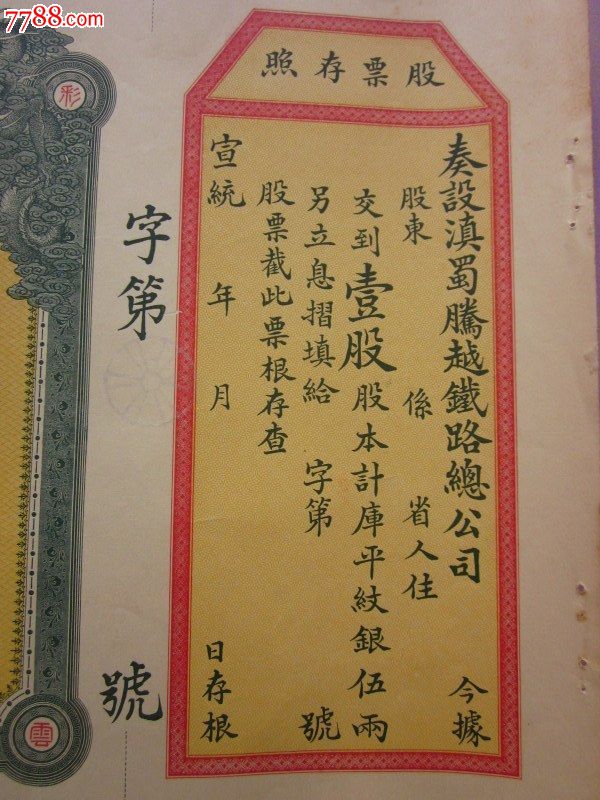 7788.com
股票存照
奏設滇蜀騰越鐵路總公司 今據
股東 係 省人住
交到壹股股本計庫平紋銀伍兩
另立息摺填給 字第 號
股票截此票根存查
宣統 年 月 日存根
字第 號
彩
雲